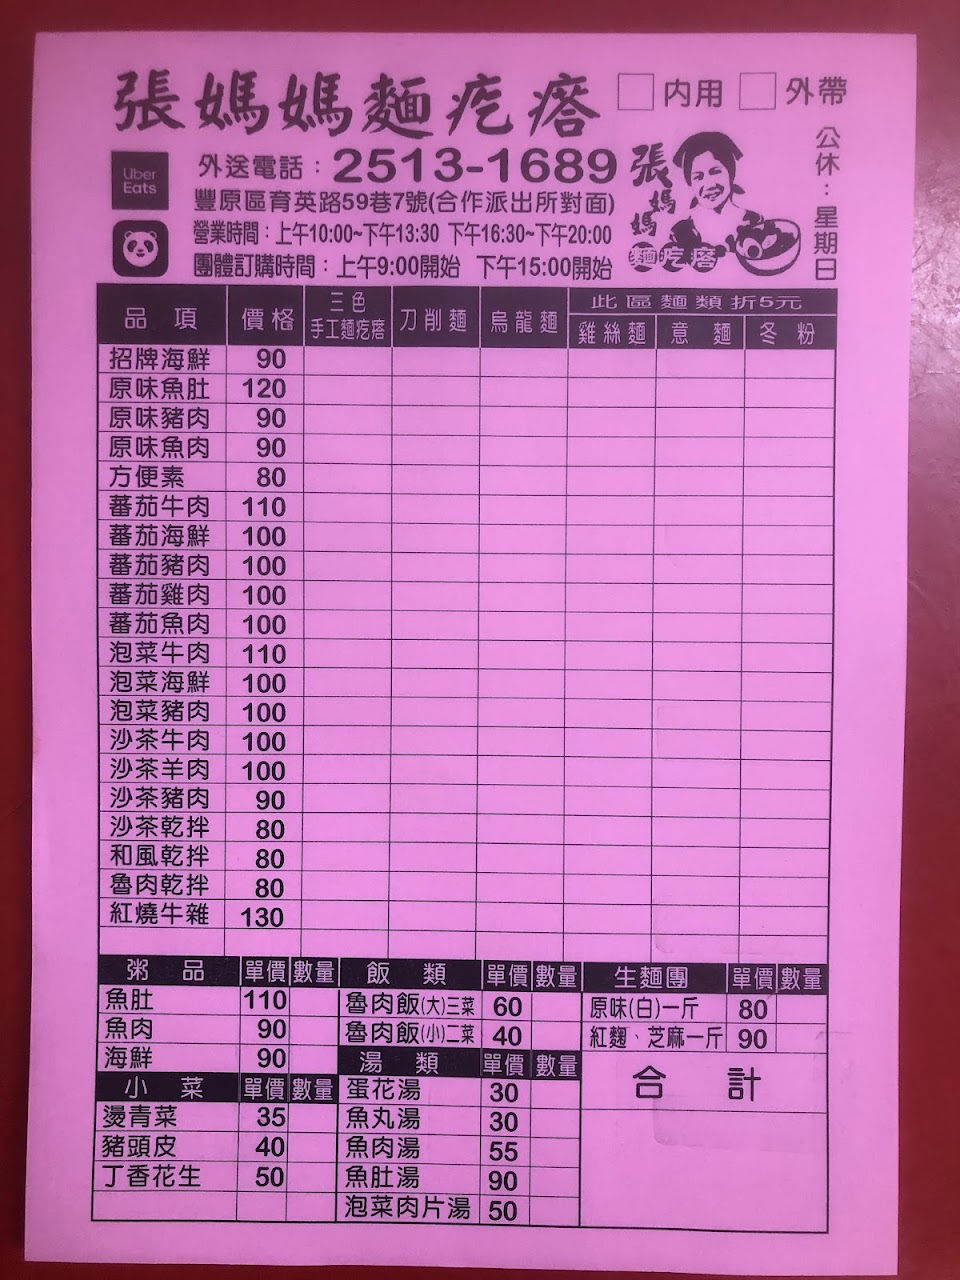 張媽媽麵疙瘩 □內用 □外帶
Uber Eats
外送電話：2513-1689
豐原區育英路59巷7號(合作派出所對面)
營業時間：上午10:00~下午13:30 下午16:30~下午20:00
團體訂購時間：上午9:00開始 下午15:00開始
張媽媽
麵疙瘩
公休：星期日
品項 價格 三色手工麵疙瘩 刀削麵 烏龍麵 此區麵類折5元
雞絲麵 意麵 冬粉
招牌海鮮 90
原味魚肚 120
原味豬肉 90
原味魚肉 90
方便素 80
蕃茄牛肉 110
蕃茄海鮮 100
蕃茄豬肉 100
蕃茄雞肉 100
蕃茄魚肉 100
泡菜牛肉 110
泡菜海鮮 100
泡菜豬肉 100
沙茶牛肉 100
沙茶羊肉 100
沙茶豬肉 90
沙茶乾拌 80
和風乾拌 80
魯肉乾拌 80
紅燒牛雜 130
粥品 單價 數量
魚肚 110
魚肉 90
海鮮 90
小菜 單價 數量
燙青菜 35
豬頭皮 40
丁香花生 50
飯類 單價 數量
魯肉飯(大)三菜 60
魯肉飯(小)二菜 40
湯類 單價 數量
蛋花湯 30
魚丸湯 30
魚肉湯 55
魚肚湯 90
泡菜肉片湯 50
生麵團 單價 數量
原味(白)一斤 80
紅麴、芝麻一斤 90
合計